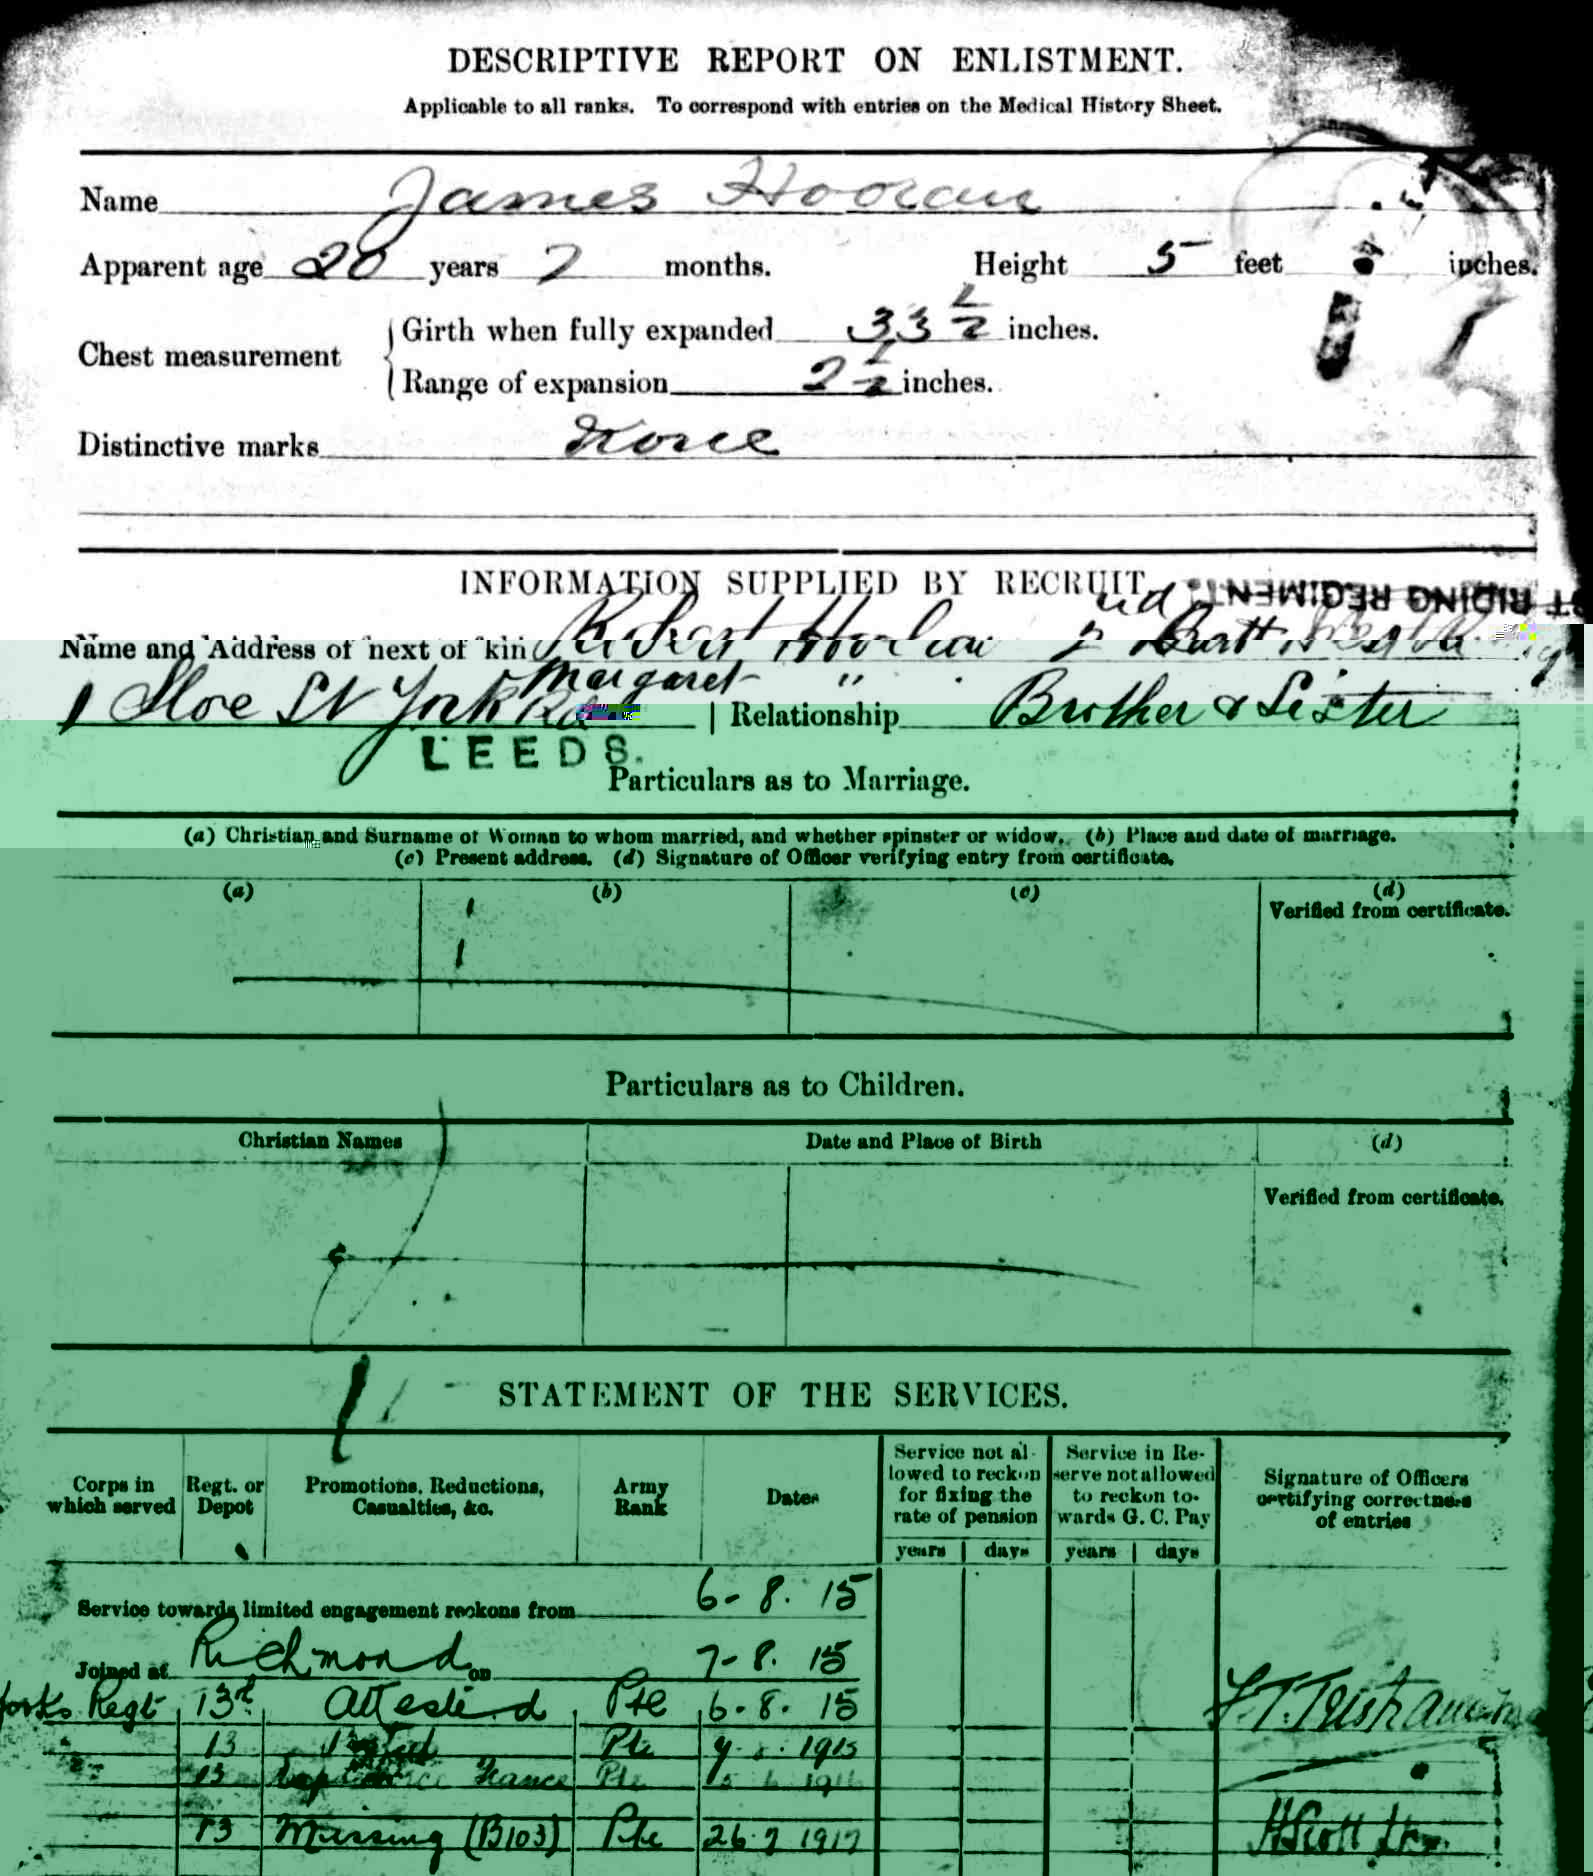 DESCRIPTIVE REPORT ON ENLISTMENT.
Applicable to all ranks. To correspond with entries on the Medical History Sheet.
Name James
Apparent age 20 years 7 months. Height 5 feet inches.
Chest measurement
Girth when fully expanded 33 1/2 inches.
Range of expansion 2 1/2 inches.
Distinctive marks None
INFORMATION SUPPLIED BY RECRUIT
RIDING REGIMENT
Name and Address of next of kin Robert
Margaret "
St York Rd | Relationship Brother & Sister
LEEDS.
Particulars as to Marriage.
(a) Christian and Surname of Woman to whom married, and whether spinster or widow. (b) Place and date of marriage.
(c) Present address. (d) Signature of Officer verifying entry from certificate.
(a) (b) (c) (d)
Verified from certificate.
Particulars as to Children.
Christian Names Date and Place of Birth (d)
Verified from certificate.
STATEMENT OF THE SERVICES.
Corps in which served Regt. or Depot Promotions, Reductions, Casualties, &c. Army Rank Dates Service not allowed to reckon for fixing the rate of pension Service in Reserve not allowed to reckon towards G. C. Pay Signature of Officers certifying correctness of entries
years days years days
Service towards limited engagement reckons from 6-8.15
Joined at Richmond on 7-8.15
Yorks Regt 13th Attested Pte 6-8.15
" 13 Posted Pte 1915
13 France Pte
13 Missing (B103) Pte 26.7 1917 H Scott